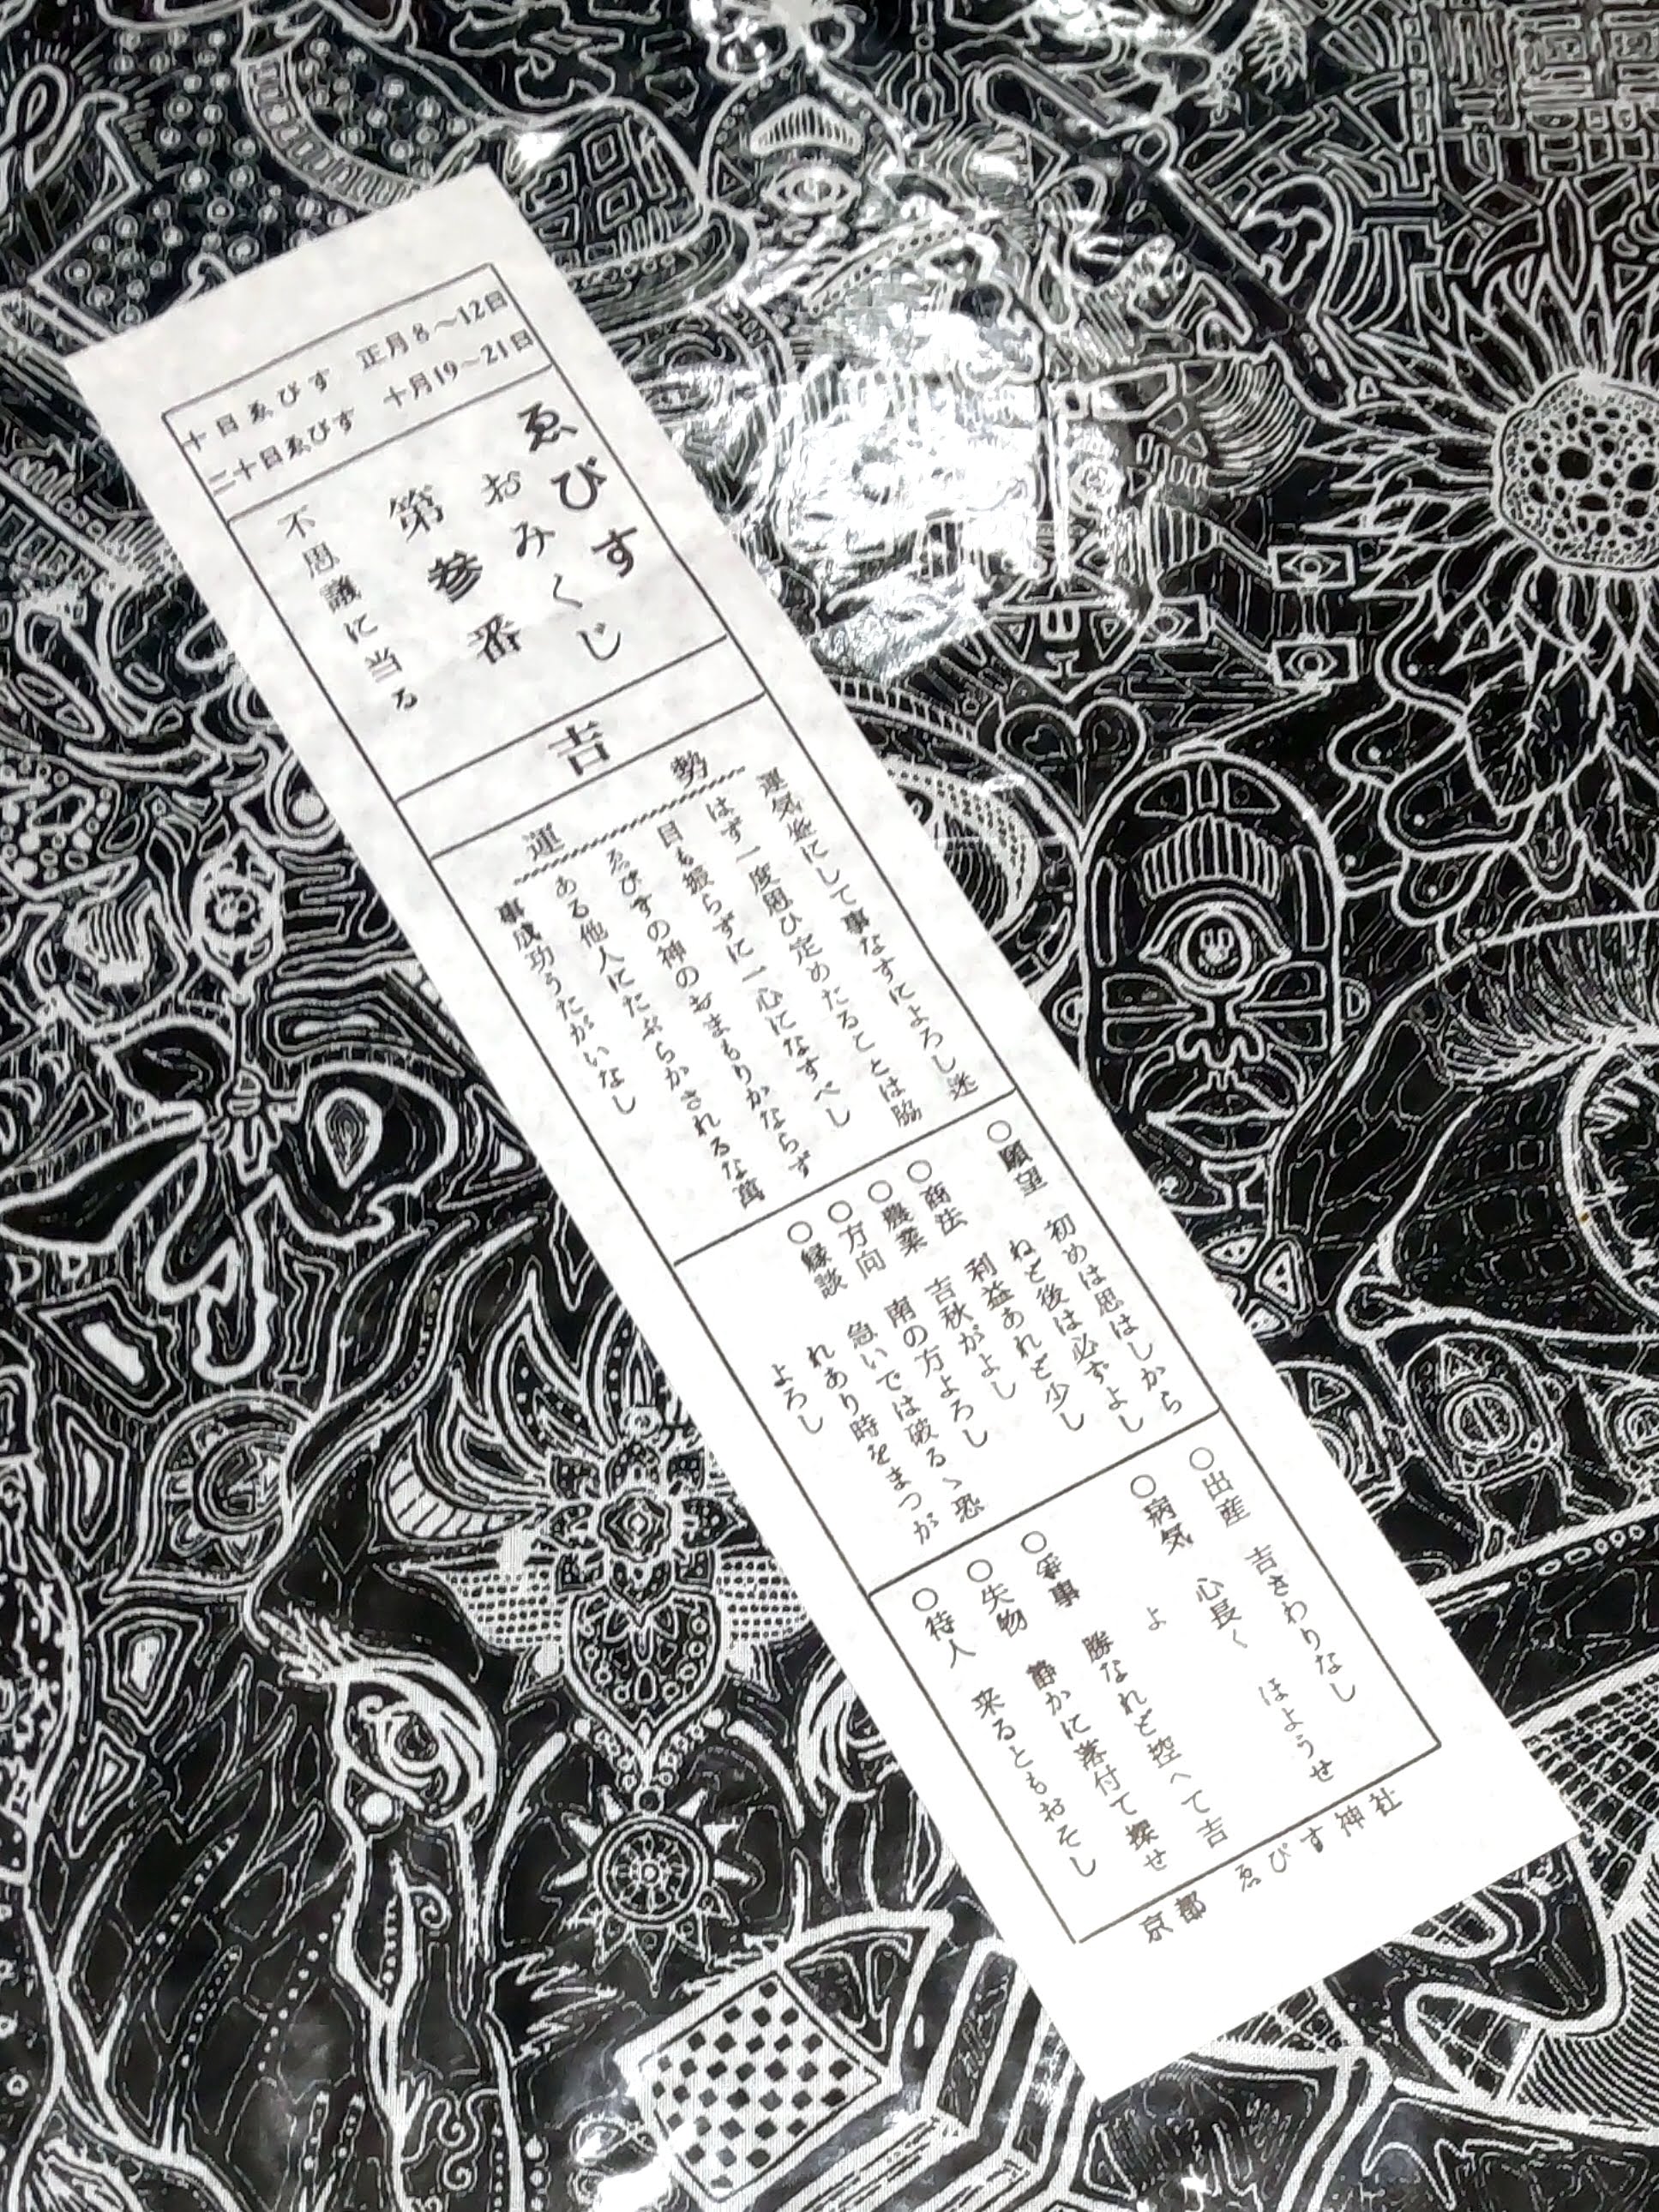 十日ゑびす　正月8〜12日
二十日ゑびす　十月19〜21日
ゑびす
おみくじ
第参番
不思議に当る
吉
運勢
運気盛にして事なすによろし迷
はず一度思ひ定めたることは脇
目も振らずに一心になすべし
ゑびすの神のおまもりかならず
ある他人にたぶらかされるな萬
事成功うたがいなし
○願望　初めは思はしから
ねど後は必ずよし
○商法　利益あれど少し
○農業　吉秋がよし
○方向　南の方よろし
○縁談　急いでは破るゝ恐
れあり時をまつが
よろし
○出産　吉さわりなし
○病気　心長く　ほようせ
よ
○争事　勝なれど控へて吉
○失物　静かに落付て探せ
○待人　来るともおそし
京都　ゑびす神社